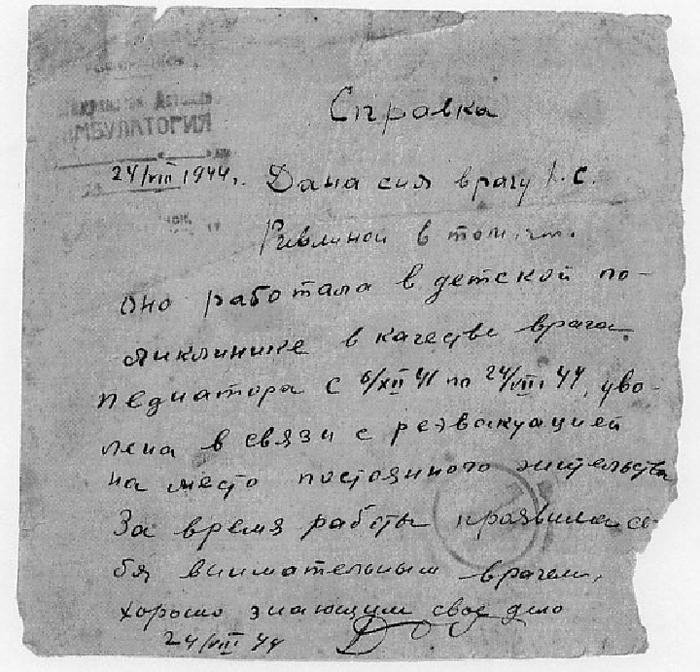 Справка
Детская
АМБУЛАТОРИЯ
24/VIII 1944г. Дана сия врачу С.
Ривлиной в том, что
она работала в детской по-
ликлинике в качестве врача
педиатора с 6/XII 41 по 24/VIII 44, уво-
лена в связи с реэвакуацией
на место постоянного жительства
За время работы проявила се-
бя внимательным врачем,
хорошо знающим свое дело
24/VIII 44